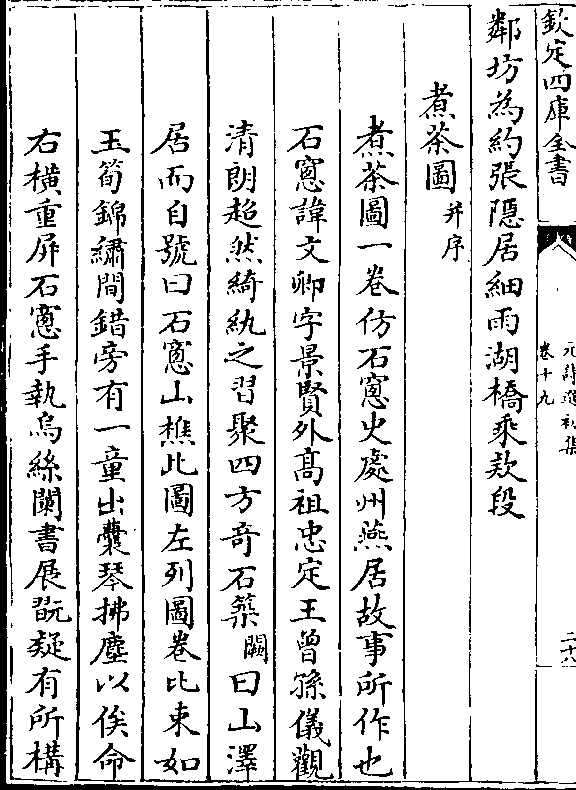 欽定四庫全書
元詩選初集
卷十九
二十八
鄰坊為約張隱居細雨湖橋乘欵段
煮茶圖并序
煮茶圖一卷仿石窻史處州燕居故事所作也
石窻諱文卿字景賢外髙祖忠定王曾孫儀觀
清朗超然綺紈之習聚四方奇石築闕曰山澤
居而自號曰石窻山樵此圖左列圖卷比束如
玉筍錦繡間錯旁有一童出囊琴拂塵以俟命
右横重屏石窻手執烏絲闌書展翫疑有所構